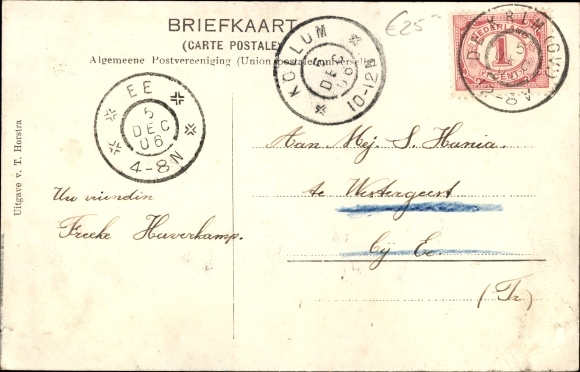 BRIEFKAART
(CARTE POSTALE)
Algemeene Postvereeniging (Union postale universelle)
€25-
KOLLUM
5 DEC 06
10-12N
NEDERLAND
1
CENT
5
EE
5
DEC
06
4-8N
Uitgave v. T. Horstra
Aan Mej. S. Hania.
te Westergeest
bij Ee.
(Fr)
Uw vriendin
Freeke Haverkamp.